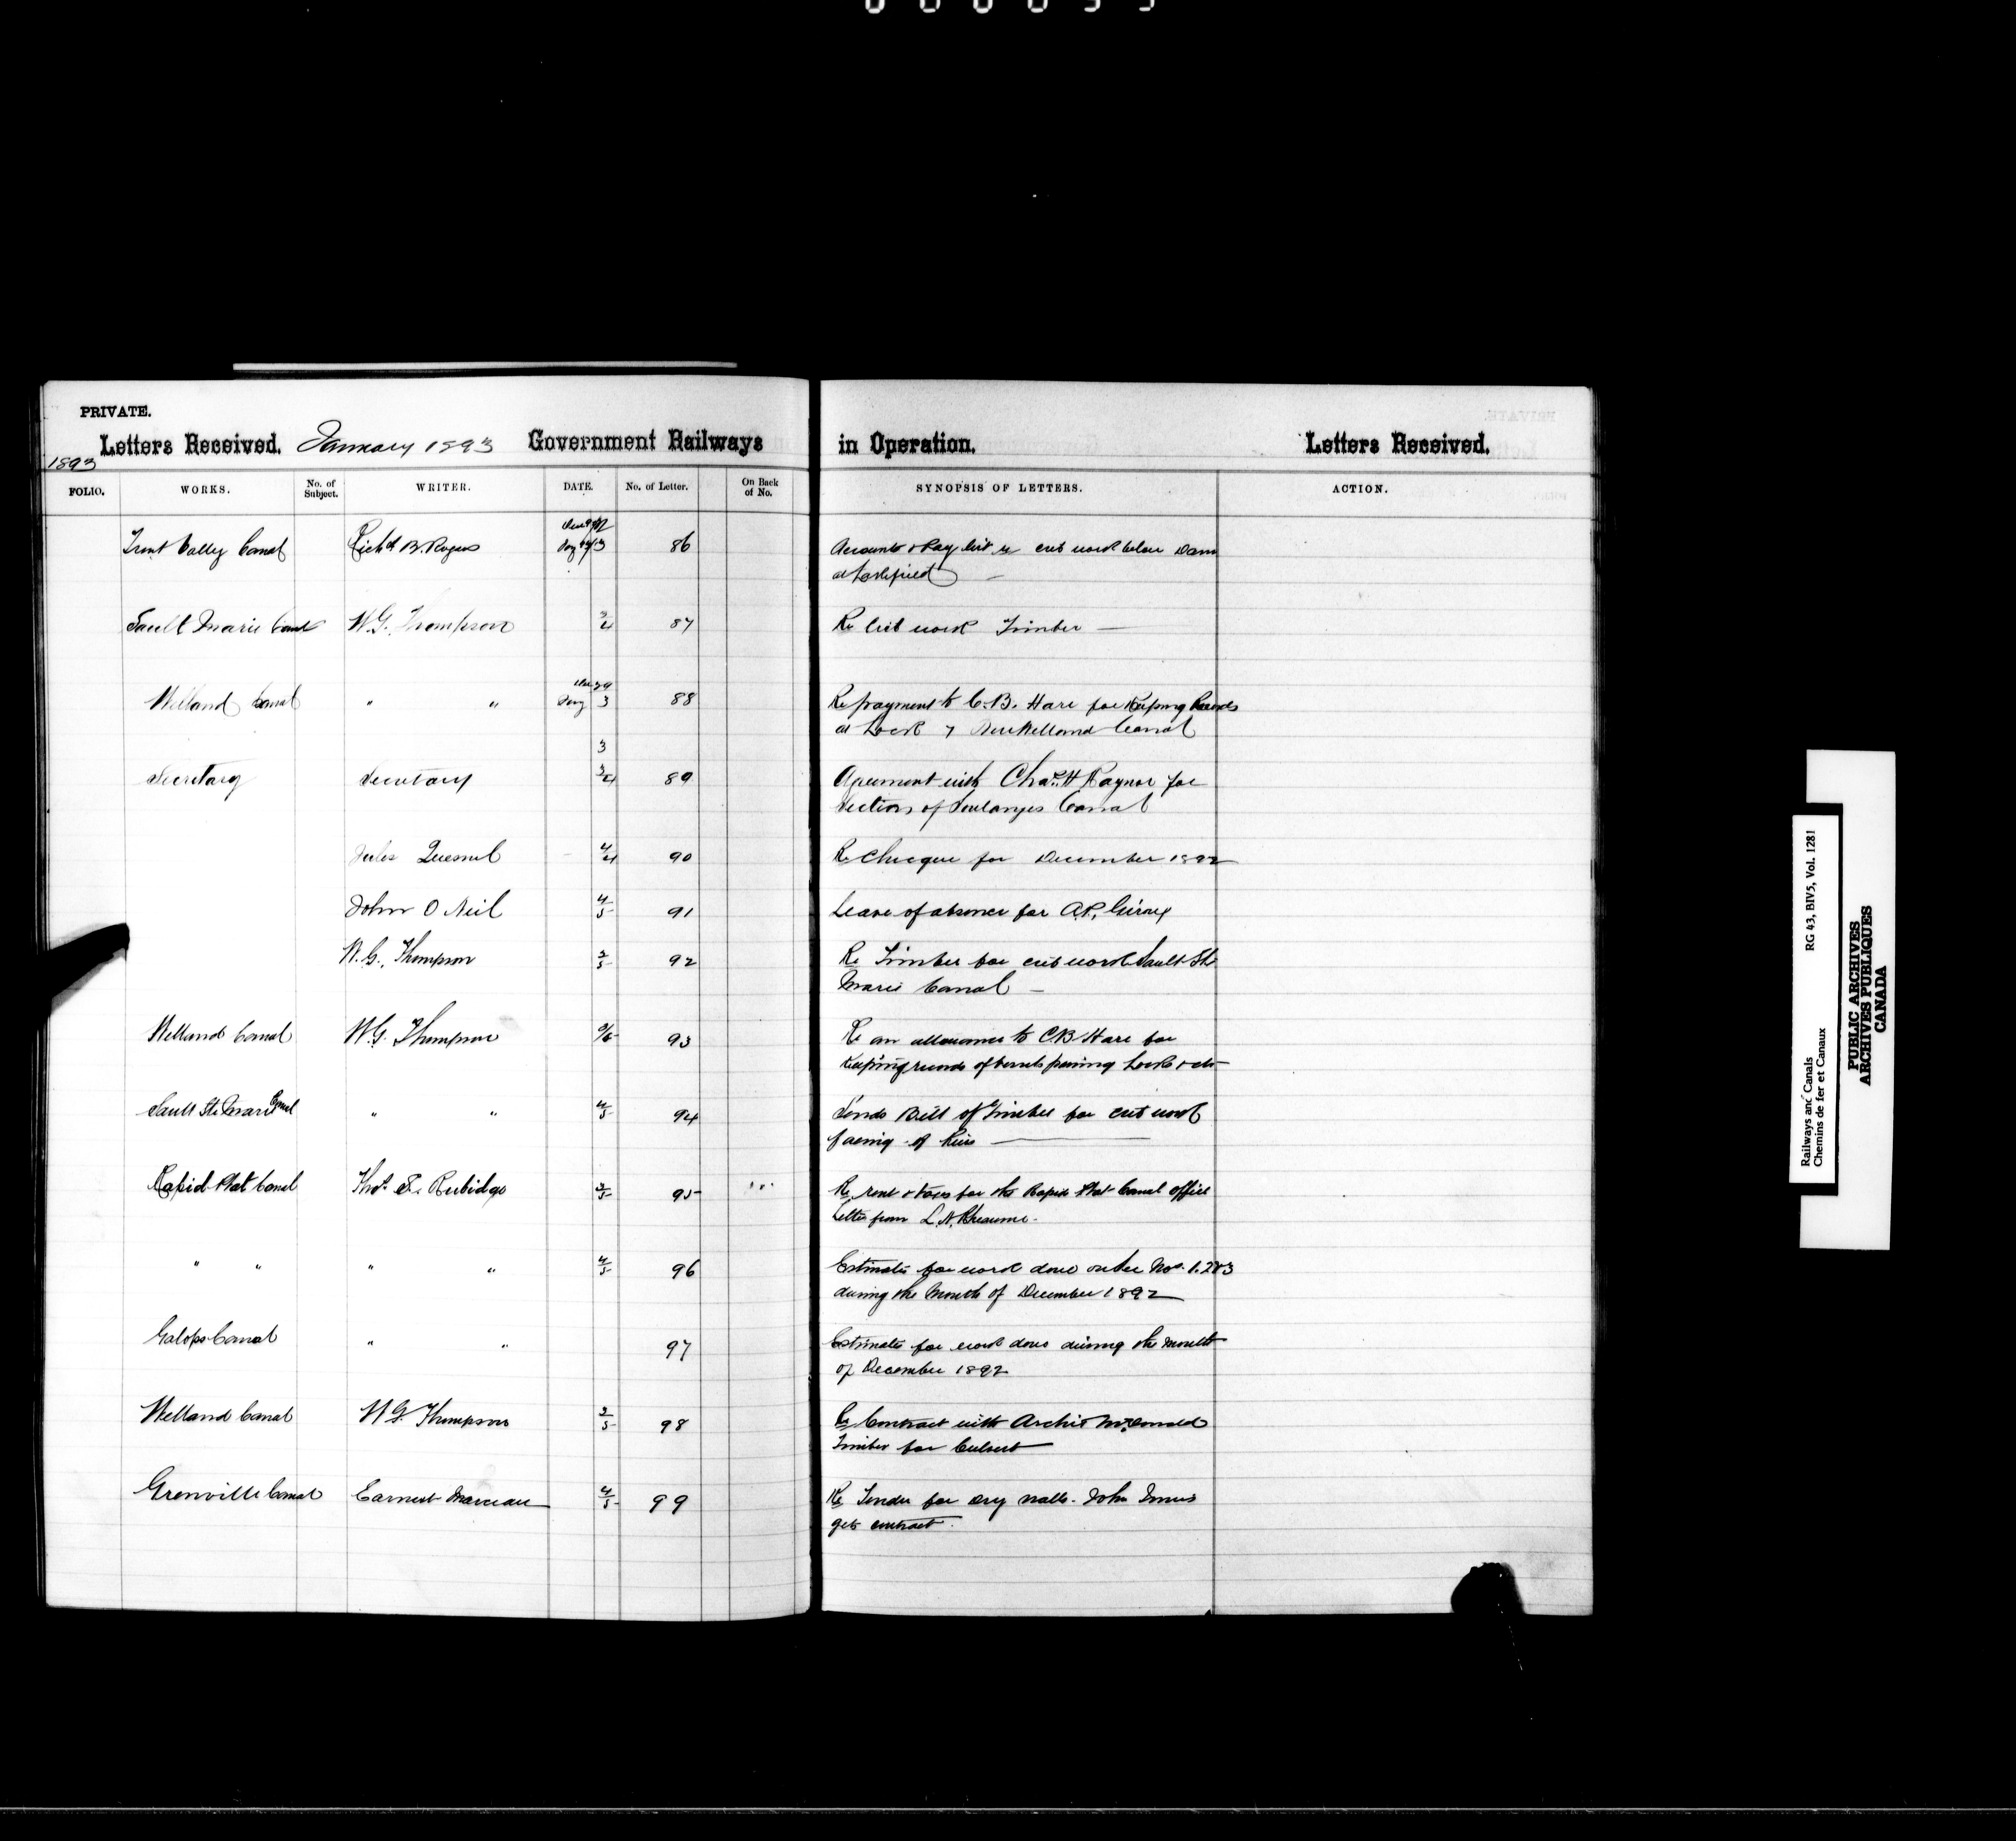 PRIVATE.
Letters Received. January 1893 Government Railways in Operation. Letters Received.
1893
FOLIO. WORKS. No. of Subject. WRITER. DATE. No. of Letter. On Back of No. SYNOPSIS OF LETTERS. ACTION.
Trent Valley Canal Richd B. Rogers 86 Accounts & Pay list re crib work below Dam
at Lakefield
Sault Marie Canal W.G. Thompson 3/4 87 Re Crib work Timber
Welland Canal " " Jany 3 88 Re payment to C.B. Hare for Keeping Records
at Lock 7 New Welland Canal
3
Secretary Secretary 3/4 89 Agreement with Chas. H Raynor for
Section of Soulanges Canal
Jules Quesnel 4/4 90 Re Cheque for December 1892
John O Neil 4/5 91 Leave of absence for A.P. Giroux
W.G. Thompson 3/5 92 Re Timber for crib work Sault Ste
Marie Canal
Welland Canal W.G. Thompson 93 Re an allowance to C.B Hare for
Keeping records of vessels passing Lock &c
Sault Ste Marie Canal " " 4/5 94 Sends Bill of Timber for crib work
facing of Piers
Rapid Plat Canal Thos. S. Rubidge 3/5 95 Re rent & taxes for the Rapid Plat Canal office
Letter from L.N. Rheaume.
" " " " 4/5 96 Estimates for work done on Sec Nos. 1. 2 & 3
during the Month of December 1892
Galops Canal " " 97 Estimates for work done during the month
of December 1892
Welland Canal W G. Thompson 3/5 98 Re Contract with Archie McDonald
Timber for Culvert
Grenville Canal Earnest Marceau 4/5 99 Re Tender for Dry walls. John Innis
gets contract.
Railways and Canals RG 43, BIV5, Vol. 1281
Chemins de fer et Canaux
PUBLIC ARCHIVES
ARCHIVES PUBLIQUES
CANADA